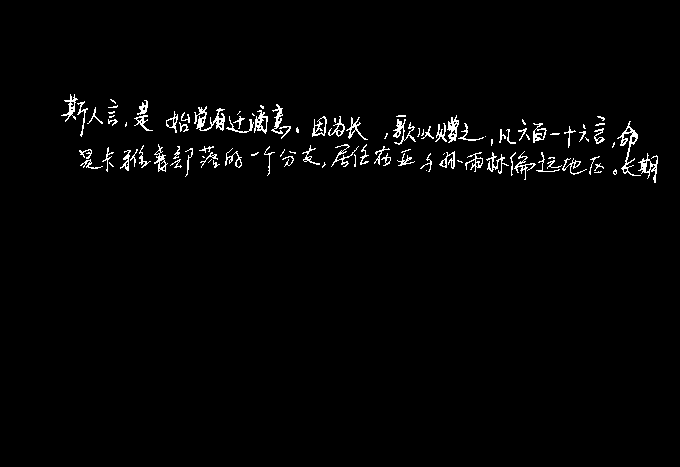 斯人言,是 始觉有迁滴意。因为长 ,歌以赠之,凡六百一十六言,命
是卡雅香部落的一个分支,居住在亚马孙雨林偏远地区。长期